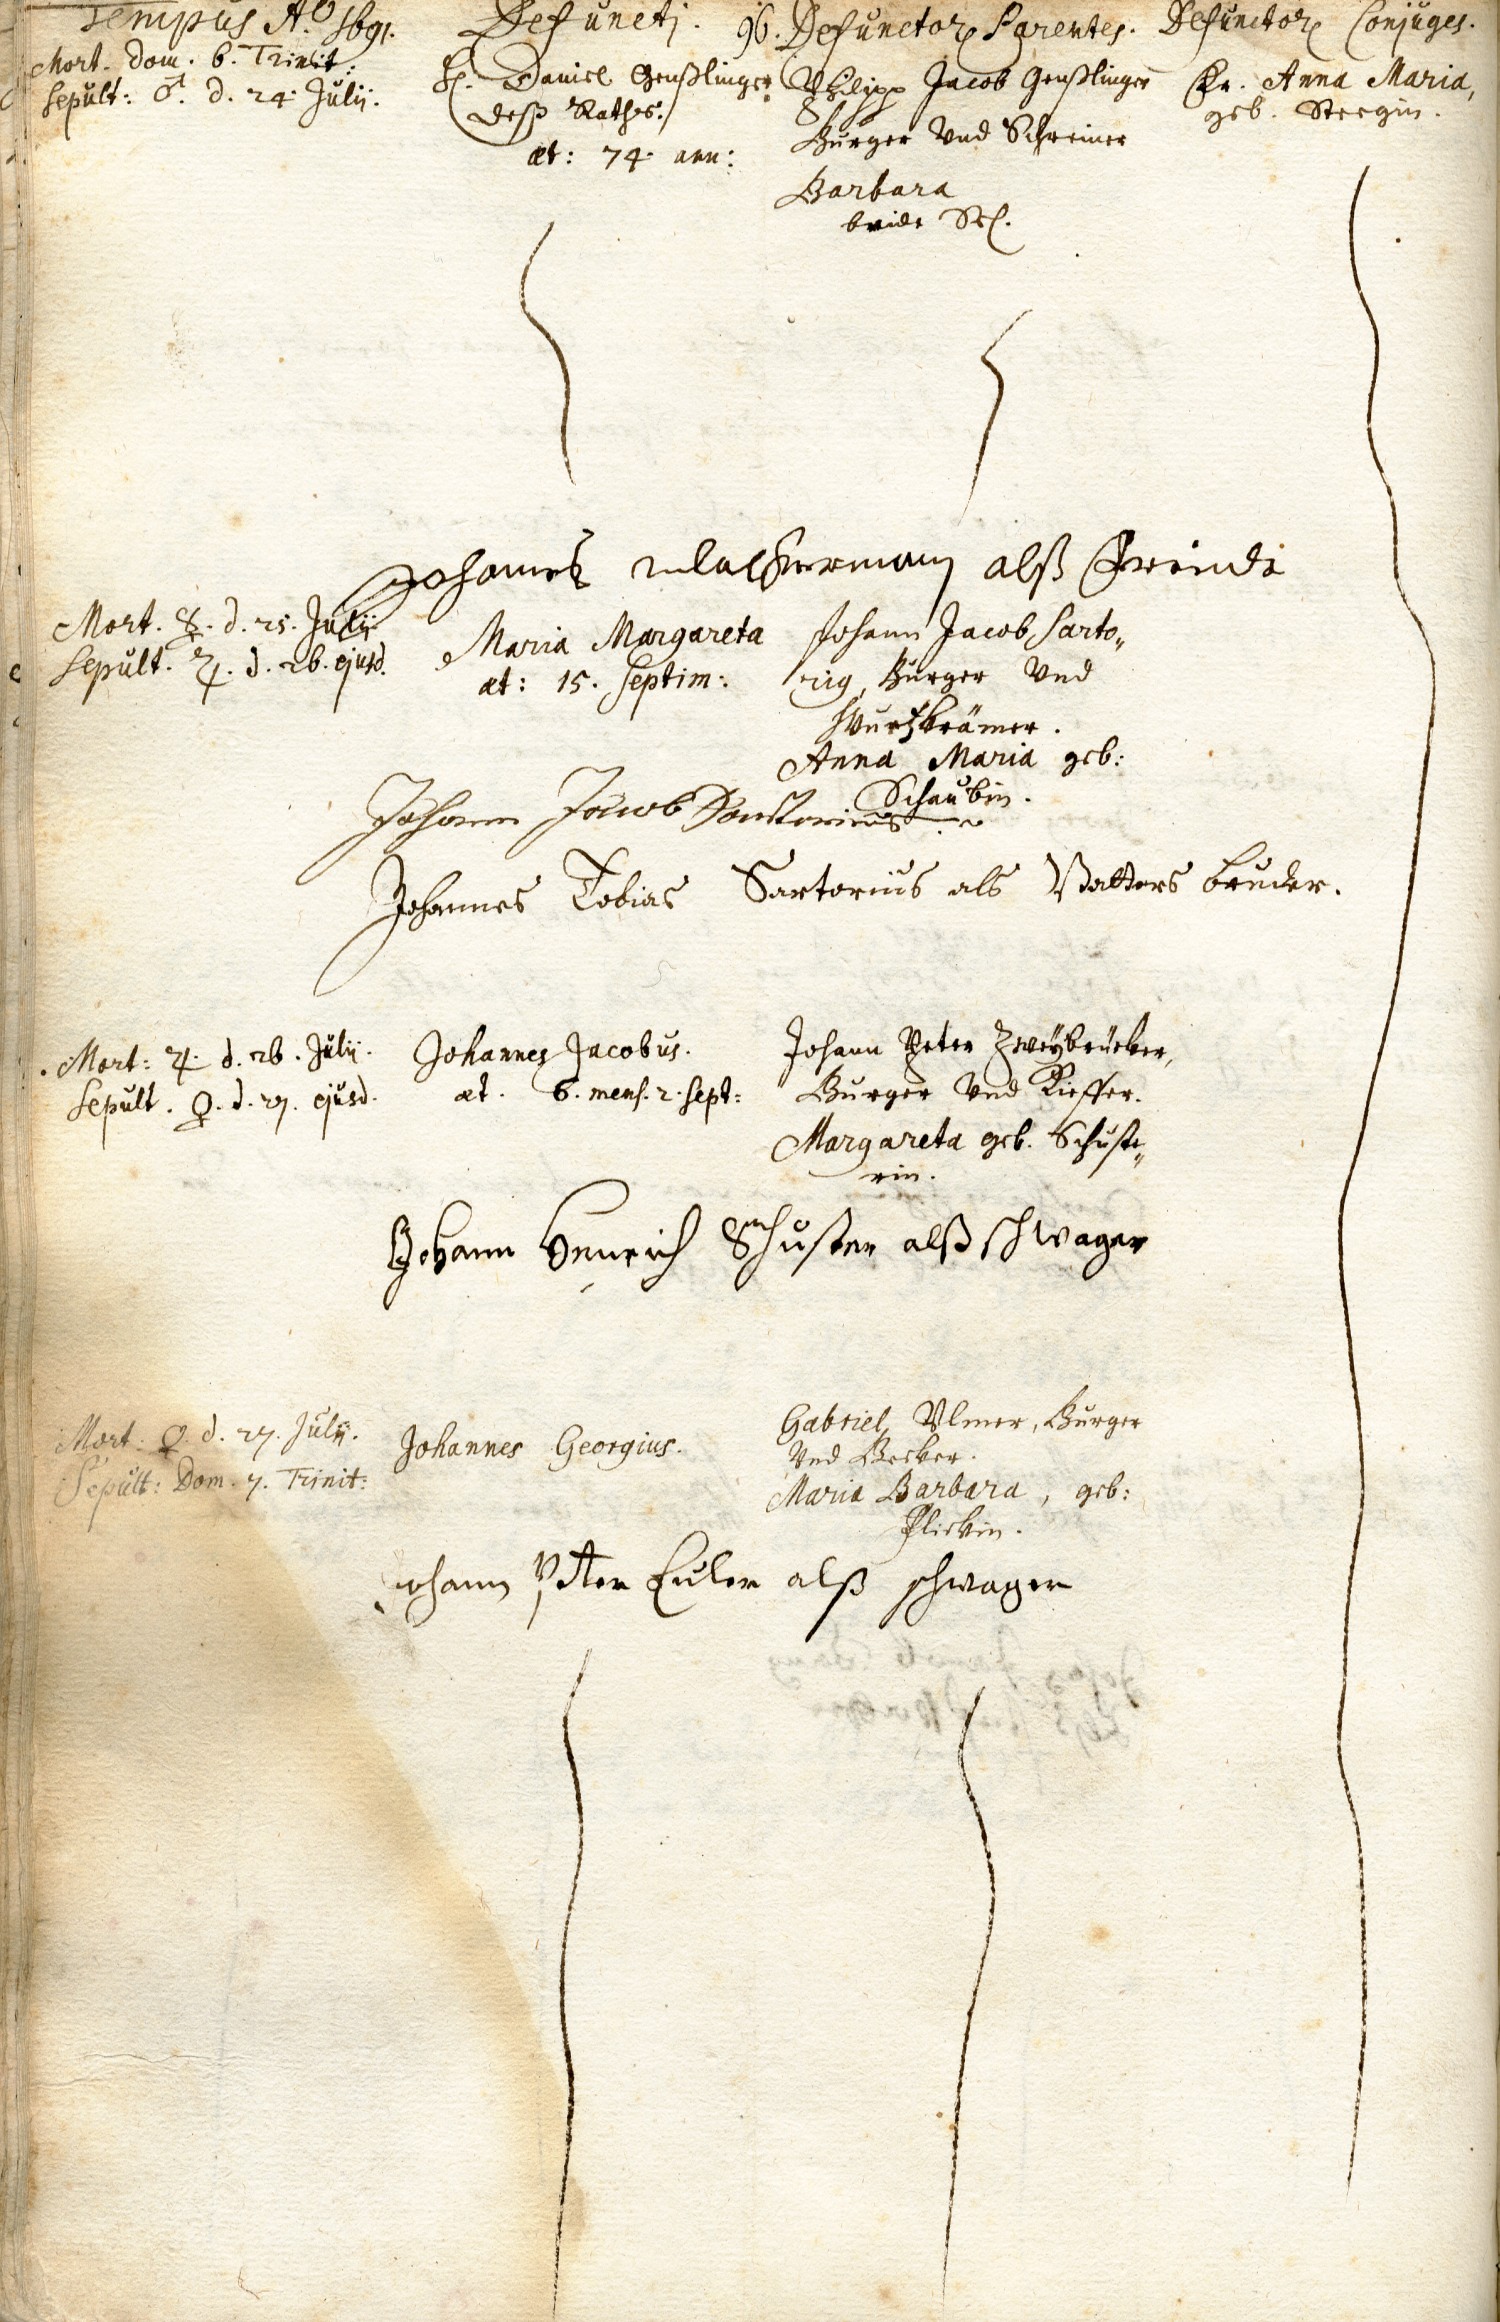 Tempus Aº 1691. Defuncti. 96. Defunctor Parentes. Defunctor Conjuges.
Mort. Dom. 6. Trinit.
Sepult: ♂. d. 24. Julij.
H. Daniel Genßlinger
deß Raths.
æt: 74. ann:
Philipp Jacob Genßlinger
Burger Und Schreiner
Barbara
beide Sel.
Fr. Anna Maria,
geb. Steegin.
Johannes alß freindt
Mort. ☿. d. 25. Julij
Sepult. ♃. d. 26. ejusd.
Maria Margareta
æt: 15. Septim:
Johann Jacob Sarto„
rig, Burger Und
Wurtzkrämer.
Anna Maria geb:
Schaubin.
Johann Jacob Sartorius
Johannes Tobias Sartorius als Vatters bruder.
Mort: ♃. d. 26. Julij.
Sepult. ♀. d. 27. ejusd.
Johannes Jacobus.
æt. 6. mens. 2. sept:
Johann Peter Zweybrücker,
Burger Und Kieffer.
Margareta geb. Schuste„
rin.
Johann Henrich Schuster alß schwager
Mort. ♀. d. 27. Julij.
Sepult: Dom. 7. Trinit:
Johannes Georgius.
Gabriel Ulmer, Burger
Und Becker.
Maria Barbara, geb:
Flickin.
Johann Peter Euler alß schwager